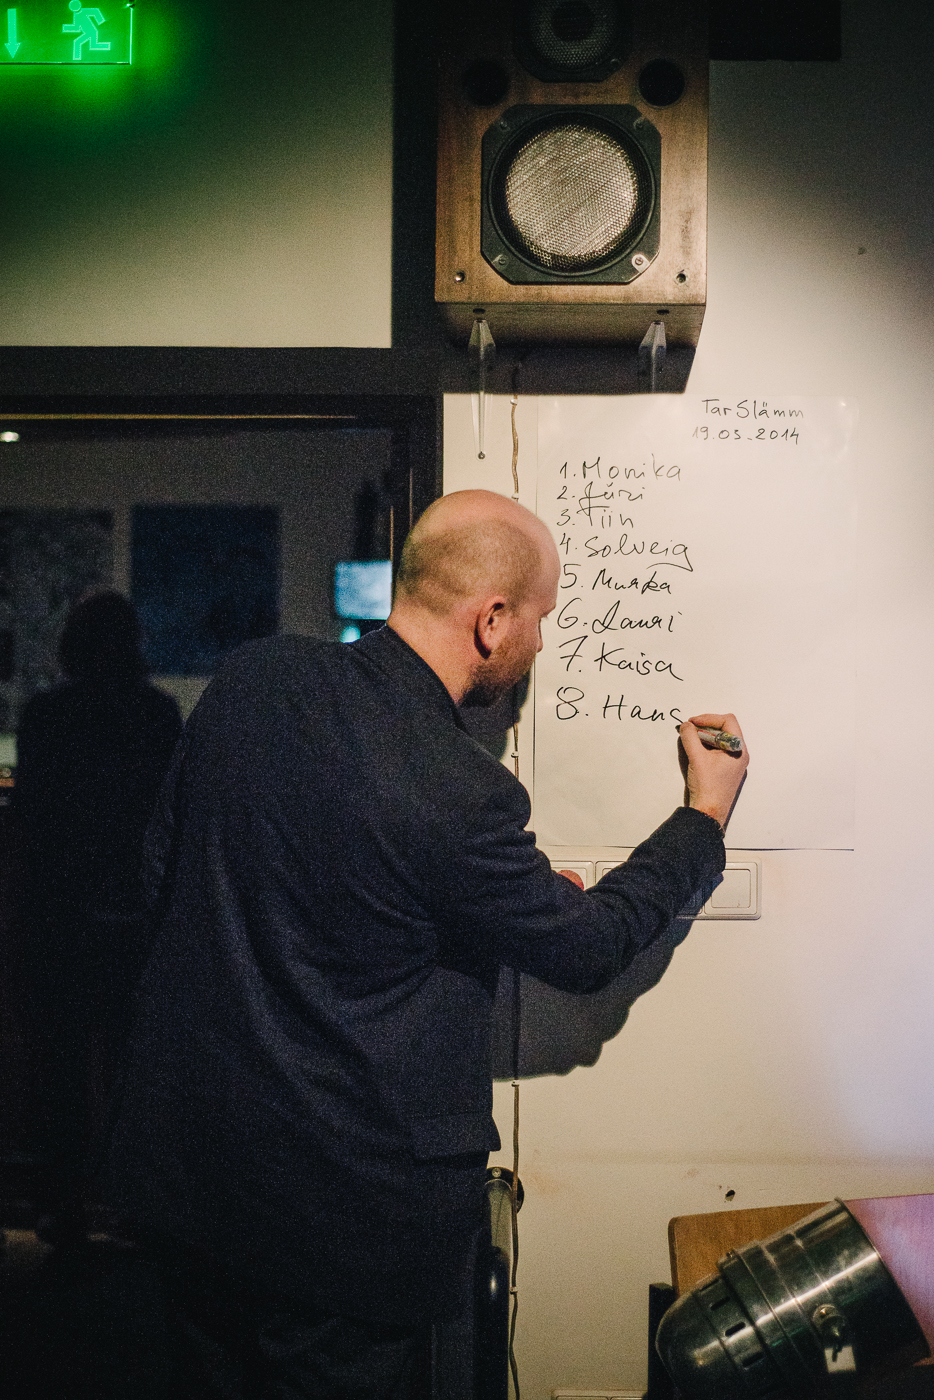 TarSlämm
19.03.2014
1. Monika
2. Jüri
3. Tiin
4. Solveig
5. Murka
6. Lauri
7. Kaisa
8. Hans